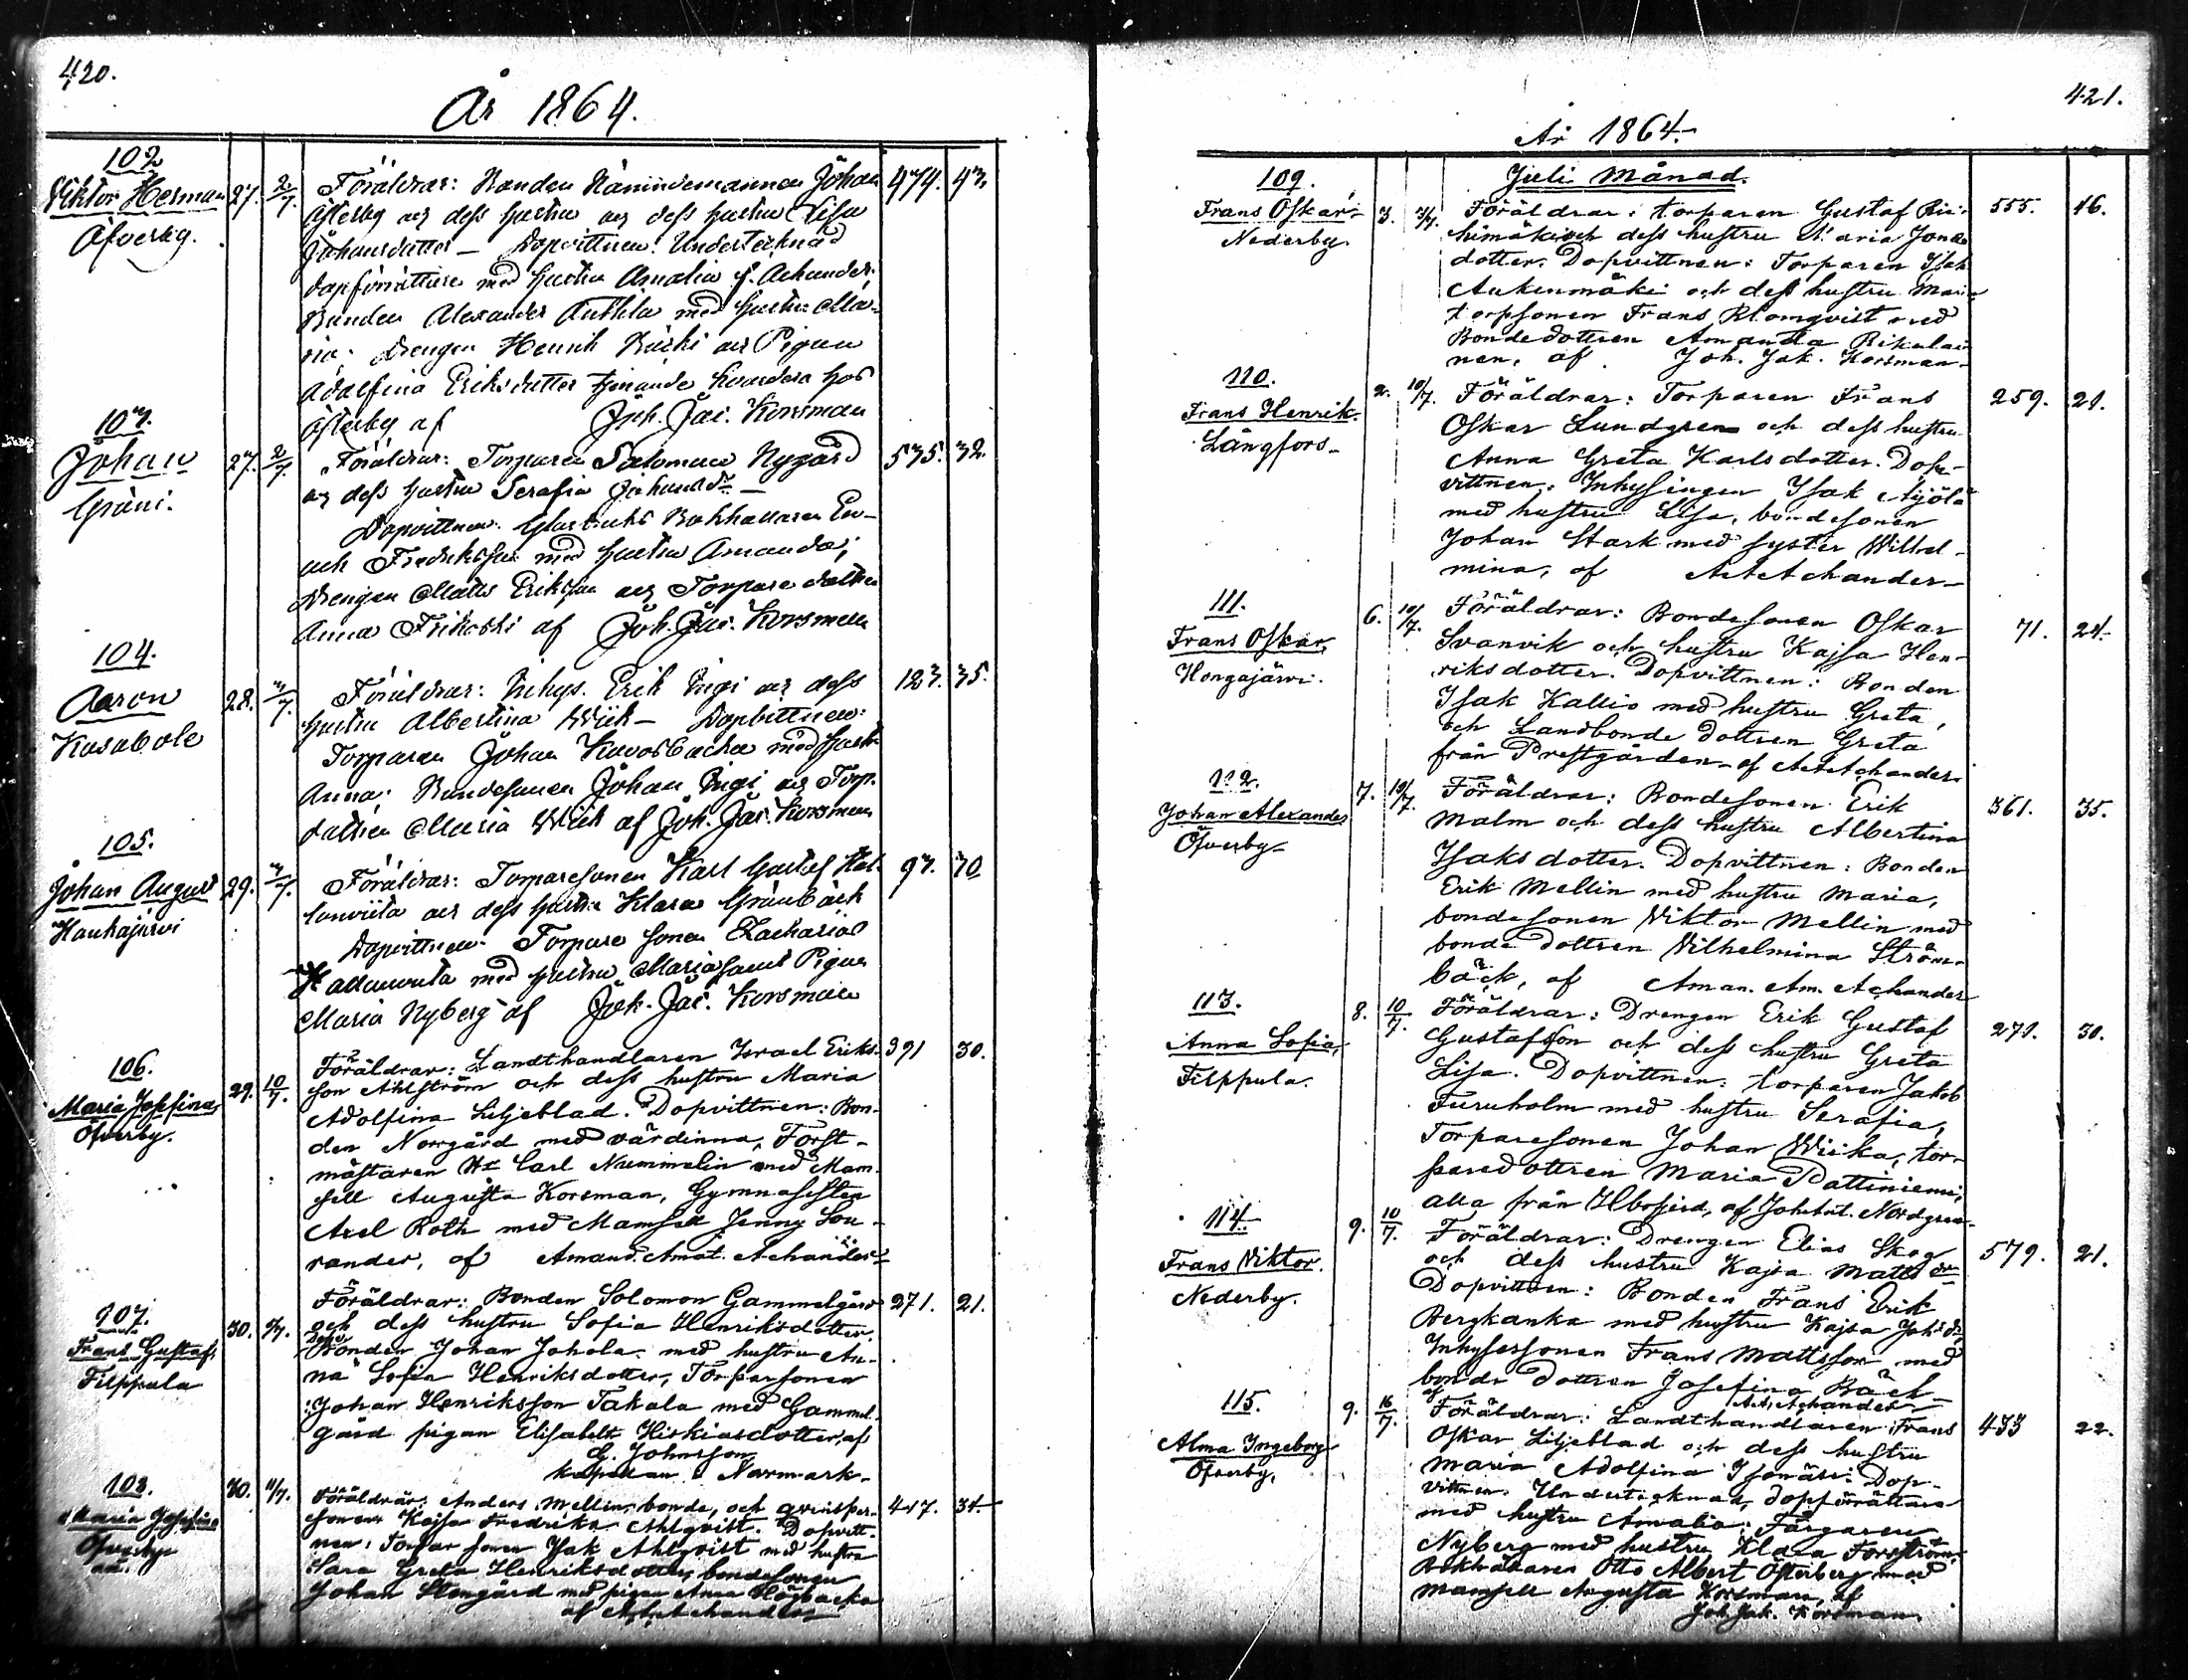 420.
År 1864.
102
Viktor Herman
Öfverby.
27. 2/7.
Föräldrar: Bonden Nämndemannen Johan
Österby och dess hustru och dess hustru Lisa
Johansdotter – Dopvittnen: Undertecknad
dopförrättare med hustru Amalia f. Achander;
Bonden Alexander Anttila med hustru Ma-
ria; Drengen Henrik och Pigan
Adolfina Eriksdotter tjenande hos
Österby af Joh. Jac. Korsman
474. 43.
103.
Johan
Gräni.
27. 2/7.
Föräldrar: Torparen Salomon Nygård
och dess hustru Serafia Johansdr –
Dopvittnen: Bokhållaren En-
och Fredriksson med hustru Amanda;
Drengen Matts Eriksson och Torpare dottren
Anna af Joh. Jac. Korsman
535. 32.
104.
Aaron
Kasabole
28. 3/7.
Föräldrar: Inhys. Erik och dess
hustru Albertina Wiik – Dopvittnen:
Torparen Johan med hustru
Anna; Bondesonen Johan och Torp.
dottren Maria Wiik af Joh. Jac. Korsman
123. 35.
105.
Johan August
Haukajärvi
29. 3/7.
Föräldrar: Torparesonen Karl Gustaf Hal-
lanviita och dess hustru Klara Grönbäck
Dopvittnen: Torpare sonen Zacharias
med hustru Maria samt Pigan
Maria Nyberg af Joh. Jac. Korsman
93. 30
106.
Maria Josefina,
Öfverby.
29. 10/7.
Föräldrar: Landthandlaren Israel Eriks-
son Ahlström och dess hustru Maria
Adolfina Liljeblad. Dopvittnen: Bon-
den Norrgård med värdinna, Forst-
mästaren Hr Carl Nummelin med Mam-
sell Augusta Korsman, Gymnasisten
Axel Roth med Mamsell Jenny Lou-
rander, af Amand. Amat. Achander
391 30.
107.
Frans Gustaf,
Filppula
30. 3/7.
Föräldrar: Bonden Solomon Gammelgård
och dess hustru Sofia Henriksdotter.
Dopv.
Bonden Johan Johola med hustru An-
na Sofia Henriksdotter, Torparsonen
Johan Henriksson Takala med Gammel-
gård pigan Elisabeth Hiskiasdotter, af
G. Johnsson
kapellan i Norrmark.
271. 21.
108.
Maria Josefina
Öfverby
30. 11/7.
Föräldrar: Anders Mellin, bonde, och qvinsper-
sonen Kajsa Fredrika Ahlqvist. Dopvitt-
nen: Torpar sonen Isak Ahlqvist med hustru
Sara Greta Henriksdotter, bondesonen
Johan Stengård med pigan Anna Högbacka
af A. A. Achander
447. 34
421.
År 1864.
Juli Månad.
109.
Frans Oskar,
Nederby
3. 3/7.
Föräldrar: torparen Gustaf Rii-
himäki och dess hustru Maria Jonas
dotter. Dopvittnen: Torparen Isak
Aukenmäki och dess hustru Maria
torpsonen Frans Blomqvist med
Bondedottren Amanda Rikalai-
nen, af Joh. Jak. Korsman.
555. 46.
110.
Frans Henrik.
Långfors.
2. 10/7.
Föräldrar: Torparen Frans
Oskar Lundgren och dess hustru
Anna Greta Karlsdotter. Dop-
vittnen: Inhysingen Isak Myölä
med hustru Lisa, bondesonen
Johan Stark med syster Wilhel-
mina, af A. A. Achander
259. 21.
111.
Frans Oskar,
Hongajärvi.
6. 10/7.
Föräldrar: Bondesonen Oskar
Svanvik och hustru Kajsa Hen-
riksdotter. Dopvittnen: Bonden
Isak Kallio med hustru Greta,
och Landbonde dottren Greta
från Prestgården. af A. A. Achander
71. 24.
112.
Johan Alexander
Öfverby
7. 10/7.
Föräldrar: Bondesonen Erik
Malm och dess hustru Albertina
Isaksdotter. Dopvittnen: Bonden
Erik Mellin med hustru Maria,
bondesonen Viktor Mellin med
bonde dottren Vilhelmina Ström-
bäck, af Aman. Am. Achander
361. 35.
113.
Anna Sofia,
Filppula.
8. 10/7.
Föräldrar: Drengen Erik Gustaf
Gustafsson och dess hustru Greta
Lisa. Dopvittnen: torparen Jakob
Furuholm med hustru Serafia,
Torparesonen Johan Wiika, tor-
paredottren Maria Pattiniemi,
alla från af Joh. Ant. Nordgren
271. 30.
114
Frans Viktor.
Nederby.
9. 10/7.
Föräldrar: Drengen Elias Skog
och dess hustru Kajsa Matts dr
Dopvittnen: Bonden Frans Erik
Bergkanka med hustru Kajsa Joh. dr,
Inhysessonen Frans Mattsson med
bonde dottren Josefina Bäck
af A. A. Achander
579. 21.
115.
Alma Ingeborg
Öfverby,
9. 16/7.
Föräldrar: Landthandlaren Frans
Oskar Liljeblad och dess hustru
Maria Adolfina Isomäki. Dop-
vittnen: Undertecknad, dopförrättare
med hustru Amalia; Färgaren
Nyberg med hustru Klara Forsström,
Bokhållaren Otto Albert Österberg med
mamsell Augusta Korsman, af
Joh. Jak. Korsman.
433 22.